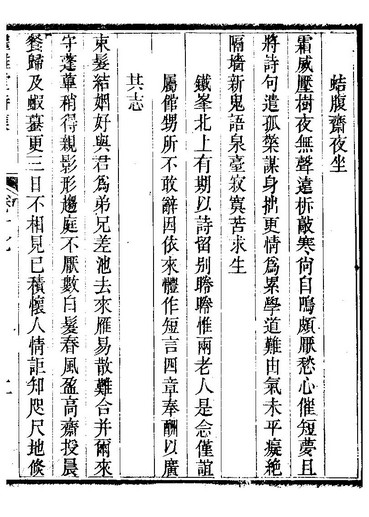 蛣腹齋夜坐
霜威壓樹夜無聲遠柝敲寒尙自鳴頗厭愁心催短夢且
將詩句遣孤檠謀身拙更情爲累學道難由氣未平癡絶
隔墻新鬼語泉臺寂寞苦求生
鐵峯北上有期以詩留别睠睠惟兩老人是念僅誼
屬館甥所不敢辭因依來體作短言四章奉酬以廣
其志
束髮結姻好與君爲弟兄差池去來雁易散難合并爾來
守蓬蓽稍得親影形趨庭不厭數白髮春風盈高齋投晨
餐歸及蝦蟇更三日不相見已積懷人情詎知咫尺地倏